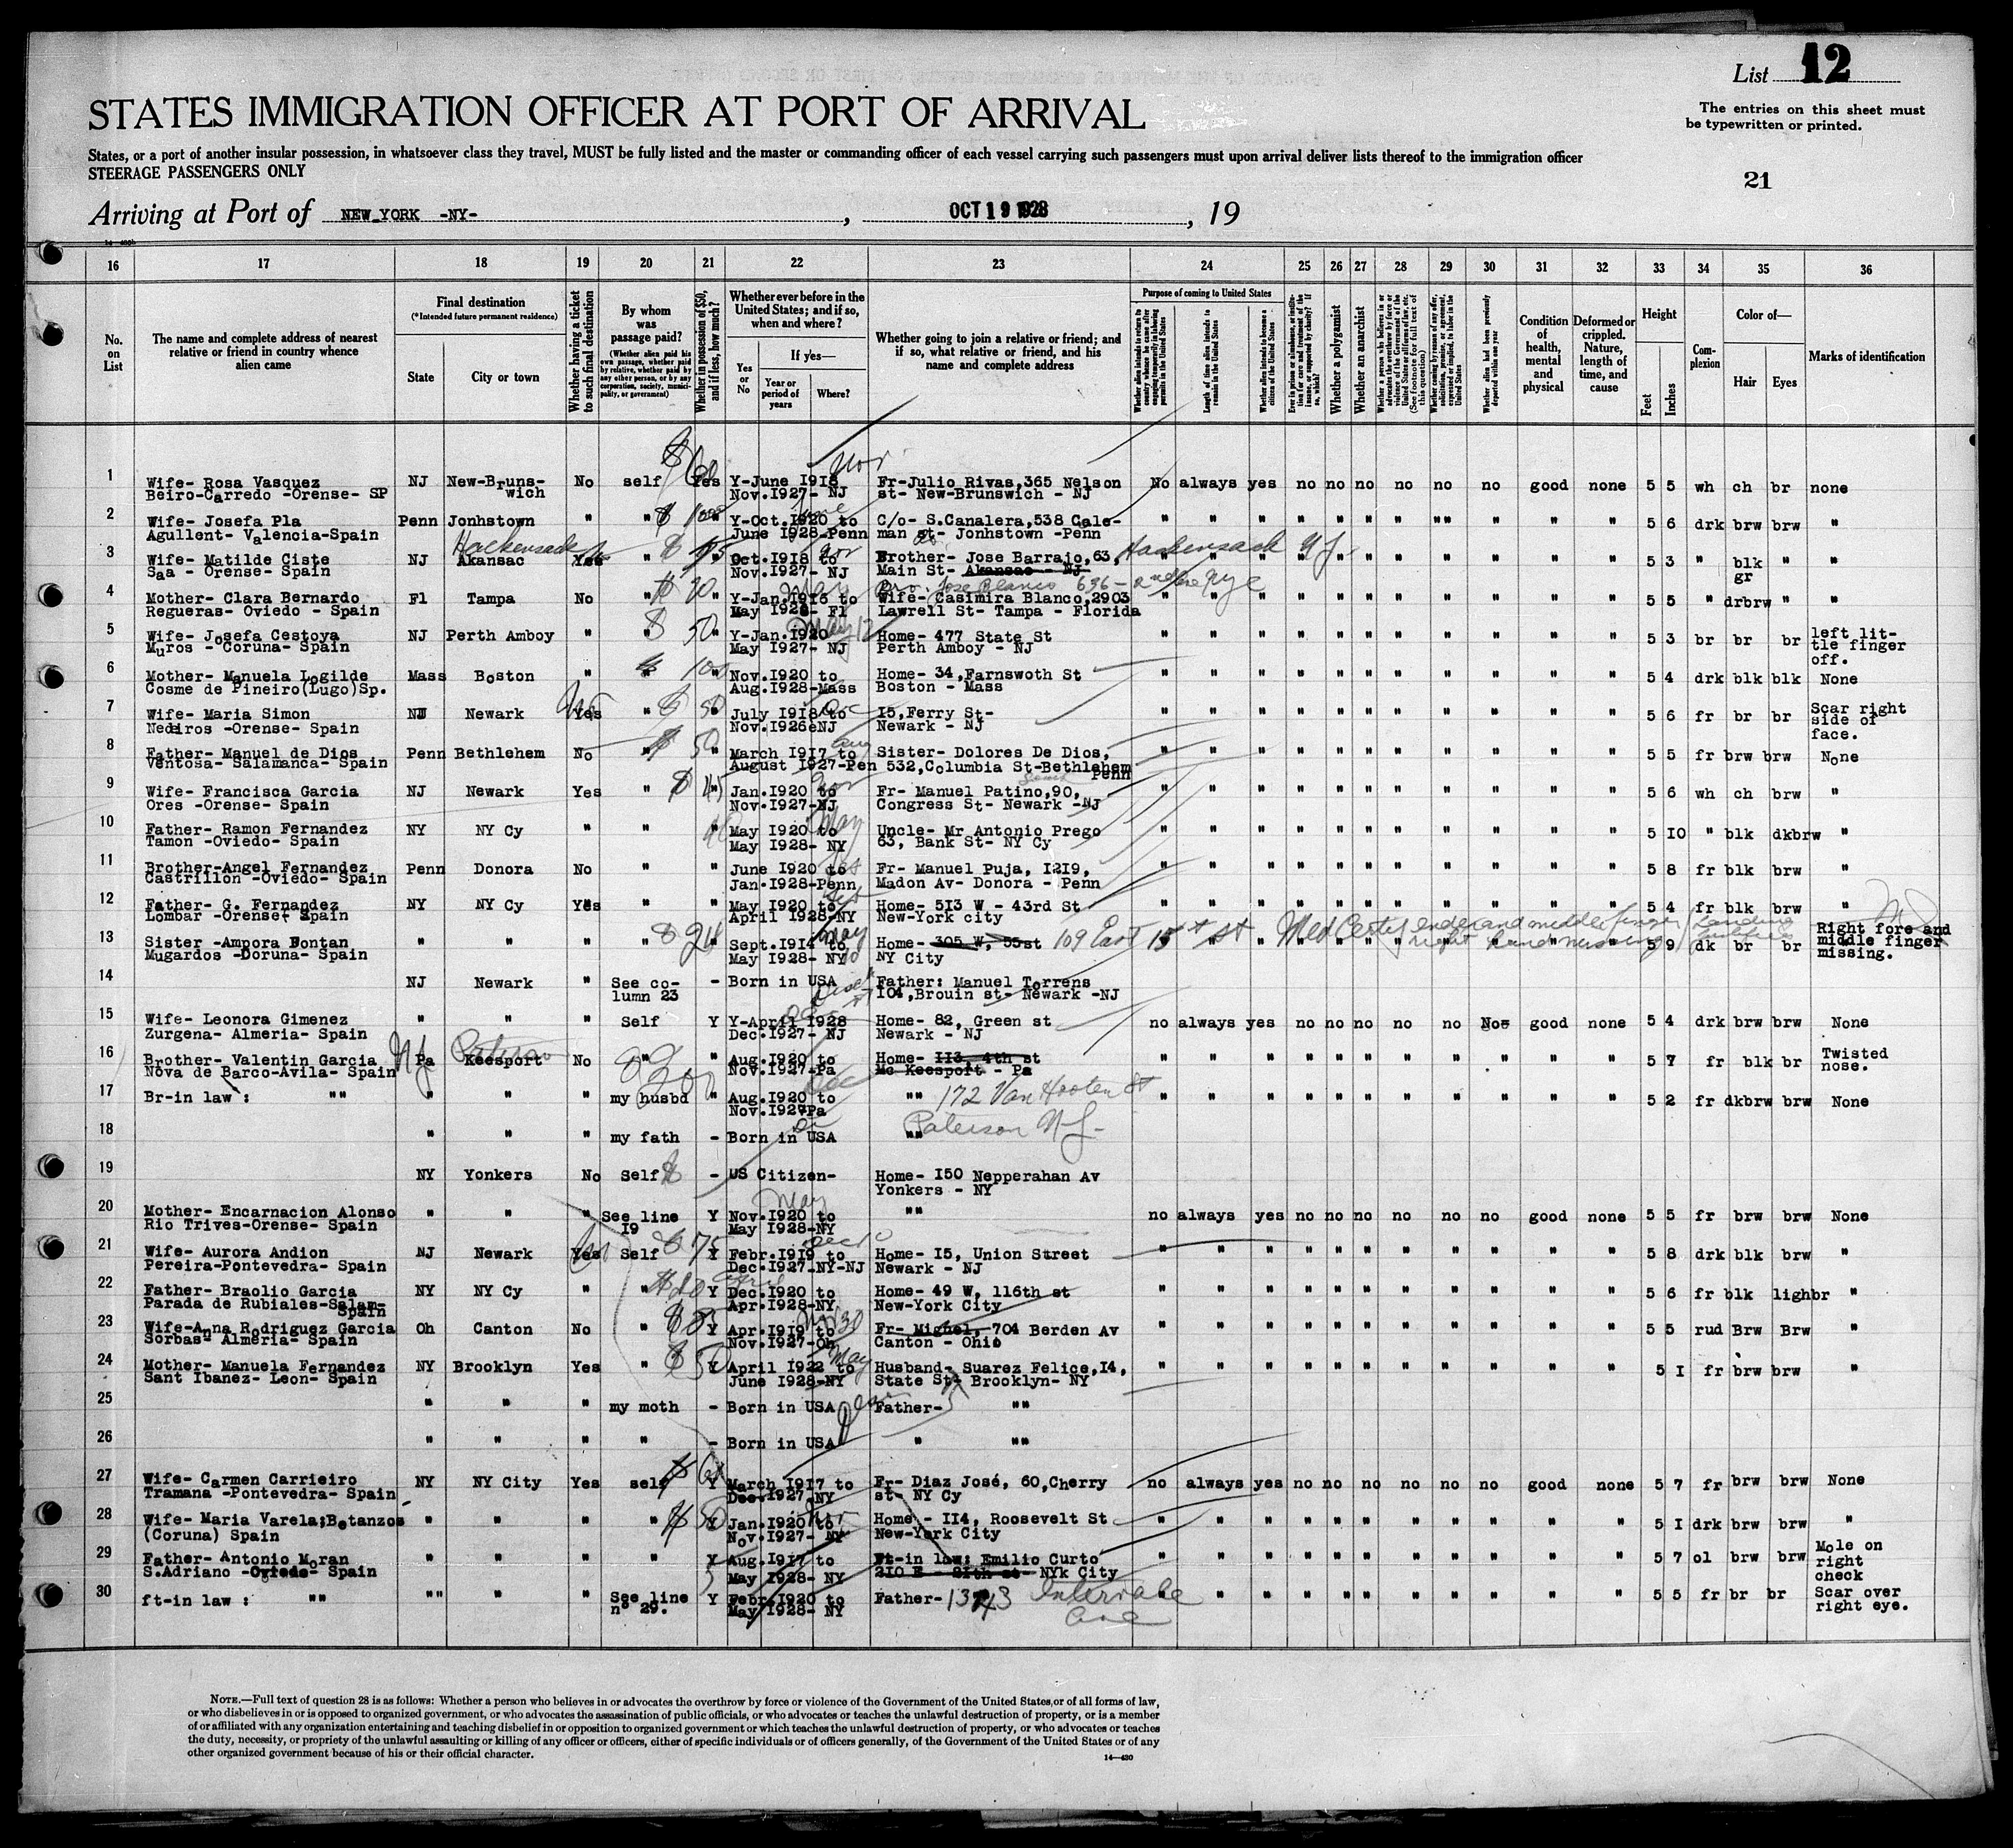 List 12
STATES IMMIGRATION OFFICER AT PORT OF ARRIVAL
The entries on this sheet must
be typewritten or printed.
States, or a port of another insular possession, in whatsoever class they travel, MUST be fully listed and the master or commanding officer of each vessel carrying such passengers must upon arrival deliver lists thereof to the immigration officer
STEERAGE PASSENGERS ONLY
21
Arriving at Port of NEW YORK -NY- , OCT 19 1928 , 19
16 17 18 19 20 21 22 23 24 25 26 27 28 29 30 31 32 33 34 35 36
No. on List
The name and complete address of nearest relative or friend in country whence alien came
Final destination
(*Intended future permanent residence)
State
City or town
Whether having a ticket to such final destination
By whom was passage paid?
(Whether alien paid his own passage, whether paid by relative, whether paid by any other person, or by any corporation, society, municipality, or government)
Whether in possession of $50, and if less, how much?
Whether ever before in the United States; and if so, when and where?
Yes or No
If yes—
Year or period of years
Where?
Whether going to join a relative or friend; and if so, what relative or friend, and his name and complete address
Purpose of coming to United States
Length of time alien intends to remain in the United States
Whether alien intends to become a citizen of the United States
Whether a polygamist
Whether an anarchist
Condition of health, mental and physical
Deformed or crippled. Nature, length of time, and cause
Height
Feet
Inches
Complexion
Color of—
Hair
Eyes
Marks of identification
1 Wife- Rosa Vasquez NJ New-Bruns- No self Yes Y-June 1918 Fr-Julio Rivas,365 Nelson No always yes no no no no no no good none 5 5 wh ch br none
Beiro-Carredo -Orense- SP wich Nov.1927- NJ st- New-Brunswich - NJ
2 Wife- Josefa Pla Penn Jonhstown " " " Y-Oct.1920 to C/o- S.Canalera,538 Cole- 5 6 drk brw brw "
Agullent- Valencia-Spain June 1928-Penn man st- Jonhstown -Penn
3 Wife- Matilde Ciste NJ Akansac Hackensack Yes " " Oct.1918 to Brother- Jose Barrajo,63, Hackensack NJ 5 3 " blk " "
Saa - Orense- Spain Nov.1927- NJ Main St- Akansac - NJ
4 Mother- Clara Bernardo Fl Tampa No " " Y-Jan.1916 to Wife- Casimira Blanco,2903 5 5 " gr drbrw " "
Regueras- Oviedo - Spain May 1928- Fl Lawrell St- Tampa - Florida
5 Wife- Josefa Cestoya NJ Perth Amboy " " 50 Y-Jan.1920 Home- 477 State St 5 3 br br br left lit-
Muros - Coruna- Spain May 1927- NJ Perth Amboy - NJ tle finger
off.
6 Mother- Manuela Logilde Mass Boston " " 100 Nov.1920 to Home- 34,Farnswoth St 5 4 drk blk blk None
Cosme de Pineiro(Lugo)Sp. Aug.1928-Mass Boston - Mass
7 Wife- Maria Simon NJ Newark Yes " 50 July 1918 to 15,Ferry St- 5 6 fr br br Scar right
Nediros -Orense- Spain Nov.1926eNJ Newark - NJ side of
face.
8 Father- Manuel de Dios Penn Bethlehem No " 50 March 1917 to Sister- Dolores De Dios, 5 5 fr brw brw None
Ventosa- Salamanca- Spain August 1927-Pen 532,Columbia St-Bethlehem
Penn
9 Wife- Francisca Garcia NJ Newark Yes " 45 Jan.1920 to Fr- Manuel Patino,90, 5 6 wh ch brw "
Ores -Orense- Spain Nov.1927-NJ Congress St- Newark -NJ
10 Father- Ramon Fernandez NY NY Cy " " " May 1920 to Uncle- Mr Antonio Prego 5 10 " blk dkbrw "
Tamon -Oviedo- Spain May 1928- NY 63, Bank St- NY Cy
11 Brother-Angel Fernandez Penn Donora No " " June 1920 to Fr- Manuel Puja, 1219, 5 8 fr blk brw "
Castrillon -Oviedo- Spain Jan.1928-Penn Madon Av- Donora - Penn
12 Father- G. Fernandez NY NY Cy Yes " " May 1920 to Home- 513 W - 43rd St 5 4 fr blk brw "
Lombar -Orense- Spain April 1928-NY New-York city
13 Sister -Ampora Fontan " " " " $ 24 Sept.1914 to Home- 305 W, 55st 109 East 15th st 5 9 dk br br Right fore and
Mugardos -Doruna- Spain May 1928- NY NY City middle finger
missing.
14 NJ Newark " See co- - Born in USA Father: Manuel Torrens
lumn 23 104,Brouin st- Newark -NJ
15 Wife- Leonora Gimenez " " " Self Y Y-April 1928 Home- 82, Green st no always yes no no no no no No= good none 5 4 drk brw brw None
Zurgena- Almeria- Spain Dec.1927- NJ Newark - NJ
16 Brother- Valentin Garcia NJ Pa Keesport Paterson No " " Aug.1920 to Home- 113, 4th st 5 7 fr blk br Twisted
Nova de Barco-Avila- Spain Nov.1927-Pa Mc Keesport - Pa nose.
17 Br-in law : "" " " " my husbd " Aug.1920 to "" 172 Van Hooten St 5 2 fr dkbrw brw None
Nov.1927Pa
18 " " " my fath - Born in USA "" Paterson NJ-
19 NY Yonkers No Self - US Citizen- Home- 150 Nepperahan Av
Yonkers - NY
20 Mother- Encarnacion Alonso " " " See line Y Nov.1920 to "" no always yes no no no no no no good none 5 5 fr brw brw None
Rio Trives-Orense- Spain 19 May 1928-NY
21 Wife- Aurora Andion NJ Newark Yes Self $ 75 Y Febr.1919 to Home- 15, Union Street 5 8 drk blk brw "
Pereira-Pontevedra- Spain Dec.1927-NY-NJ Newark - NJ
22 Father- Braolio Garcia NY NY Cy " " Y Dec.1920 to Home- 49 W, 116th st 5 6 fr blk lighbr "
Parada de Rubiales-Salam- Apr.1928-NY New-York City
Spain
23 Wife-Anna Rodriguez Garcia Oh Canton No " Y Apr.1919 to Fr- Miguel, 704 Berden Av 5 5 rud Brw Brw "
Sorbas- Almeria- Spain Nov.1927-Oh Canton - Ohio
24 Mother- Manuela Fernandez NY Brooklyn Yes " $ 50 Y April 1922 to Husband- Suarez Felice,14, 5 1 fr brw brw "
Sant Ibanez- Leon- Spain June 1928-NY State St- Brooklyn- NY
25 " " " my moth - Born in USA Father- ""
26 " " " " - Born in USA " ""
27 Wife- Carmen Carrieiro NY NY City Yes self Y March 1917 to Fr- Diaz José, 60,Cherry no always yes no no no no no no good none 5 7 fr brw brw None
Tramana -Pontevedra- Spain Dec.1927-NY st- NY Cy
28 Wife- Maria Varela;Betanzos " " " " $ 50 Y Jan.1920 to Home - 114, Roosevelt St 5 1 drk brw brw "
(Coruna) Spain Nov.1927- NY New-York City
29 Father- Antonio Moran " " " " Y Aug.1917 to Ft-in law: Emilio Curto 5 7 ol brw brw Mole on
S.Adriano -Oviedo- Spain May 1928- NY 210 E - 21th st- NYk City right
check
30 ft-in law : "" "" " " See line Y Febr.1920 to Father- 1343 Intervale 5 5 fr br br Scar over
n° 29. May 1928- NY Ave right eye.
NOTE.—Full text of question 28 is as follows: Whether a person who believes in or advocates the overthrow by force or violence of the Government of the United States, or of all forms of law,
or who disbelieves in or is opposed to organized government, or who advocates the assassination of public officials, or who advocates or teaches the unlawful destruction of property, or is a member
of or affiliated with any organization entertaining and teaching disbelief in or opposition to organized government or which teaches the unlawful destruction of property, or who advocates or teaches
the duty, necessity, or propriety of the unlawful assaulting or killing of any officer or officers, either of specific individuals or of officers generally, of the Government of the United States or of any
other organized government because of his or their official character.
14—430